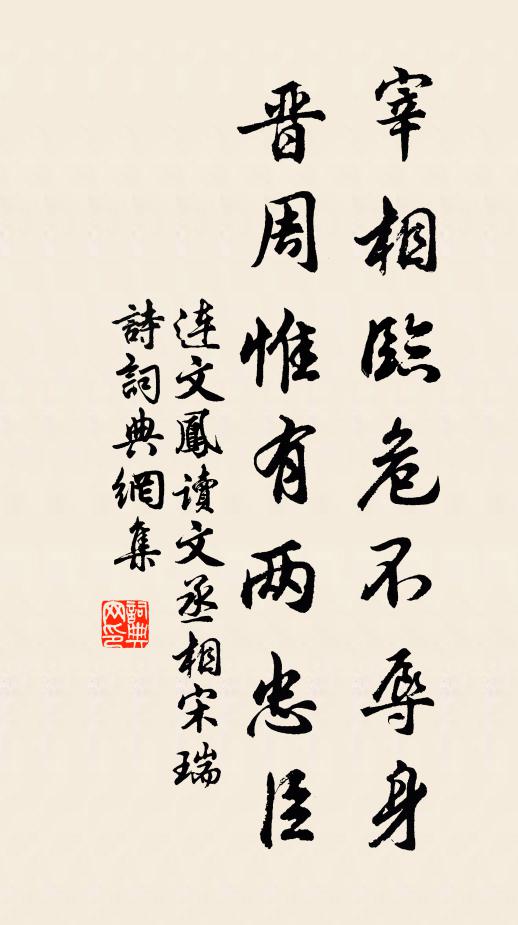 宰相臨危不辱身
晋周惟有两忠臣
连文鳳讀文丞相宋瑞
詩詞典網集
詞典网印